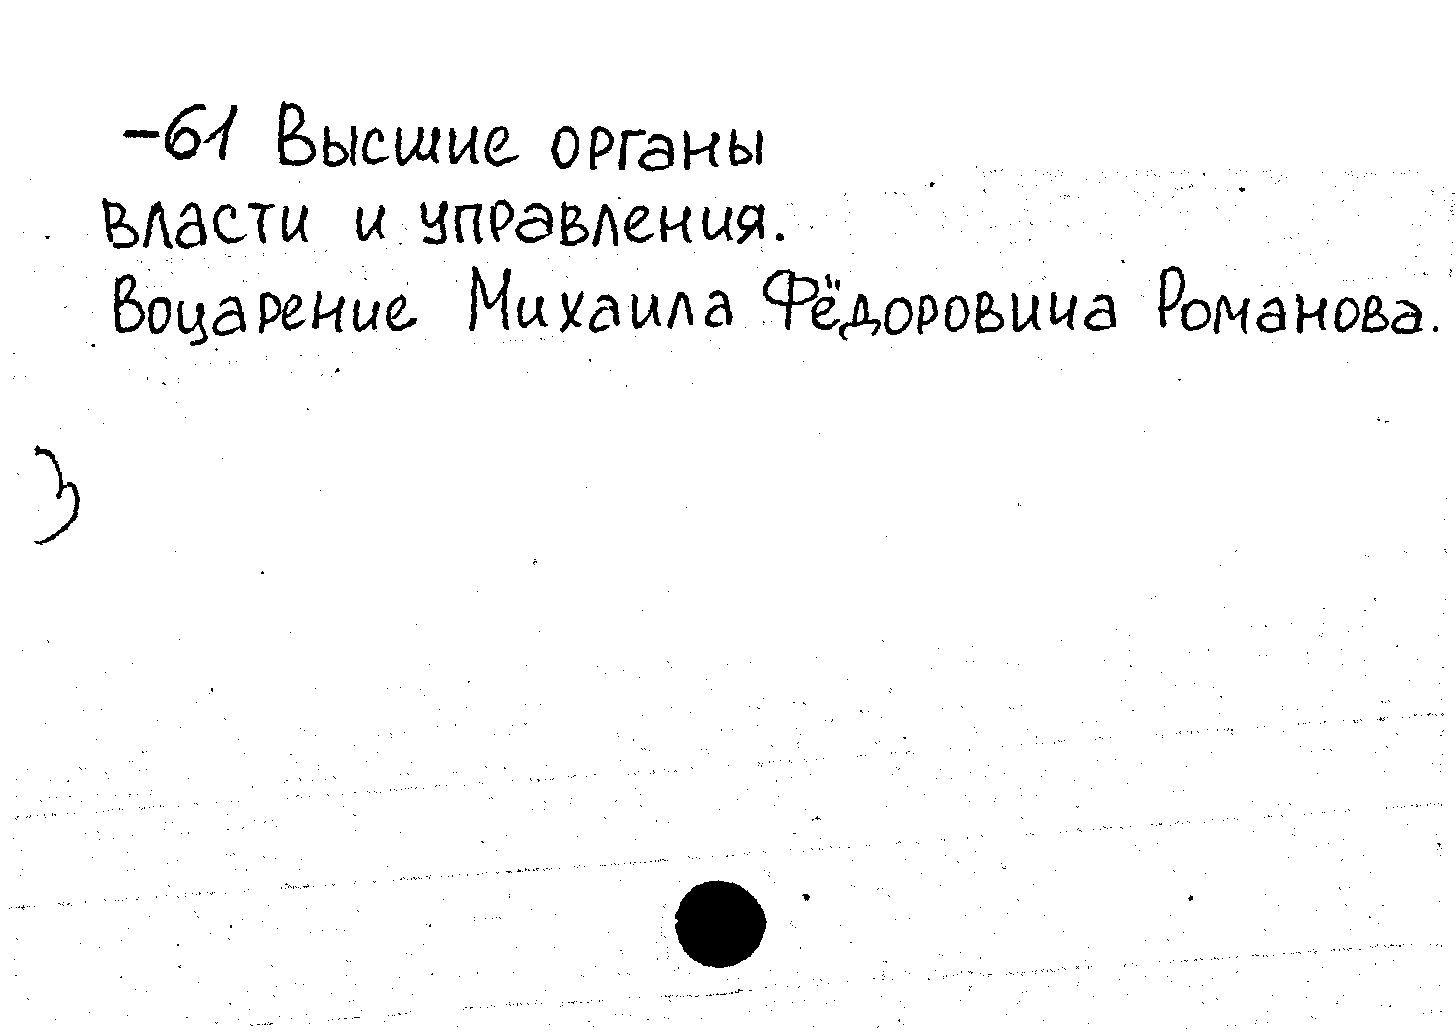 -61 Высшие органы
власти и управления.
Воцарение Михаила Фёдоровича Романова.
3